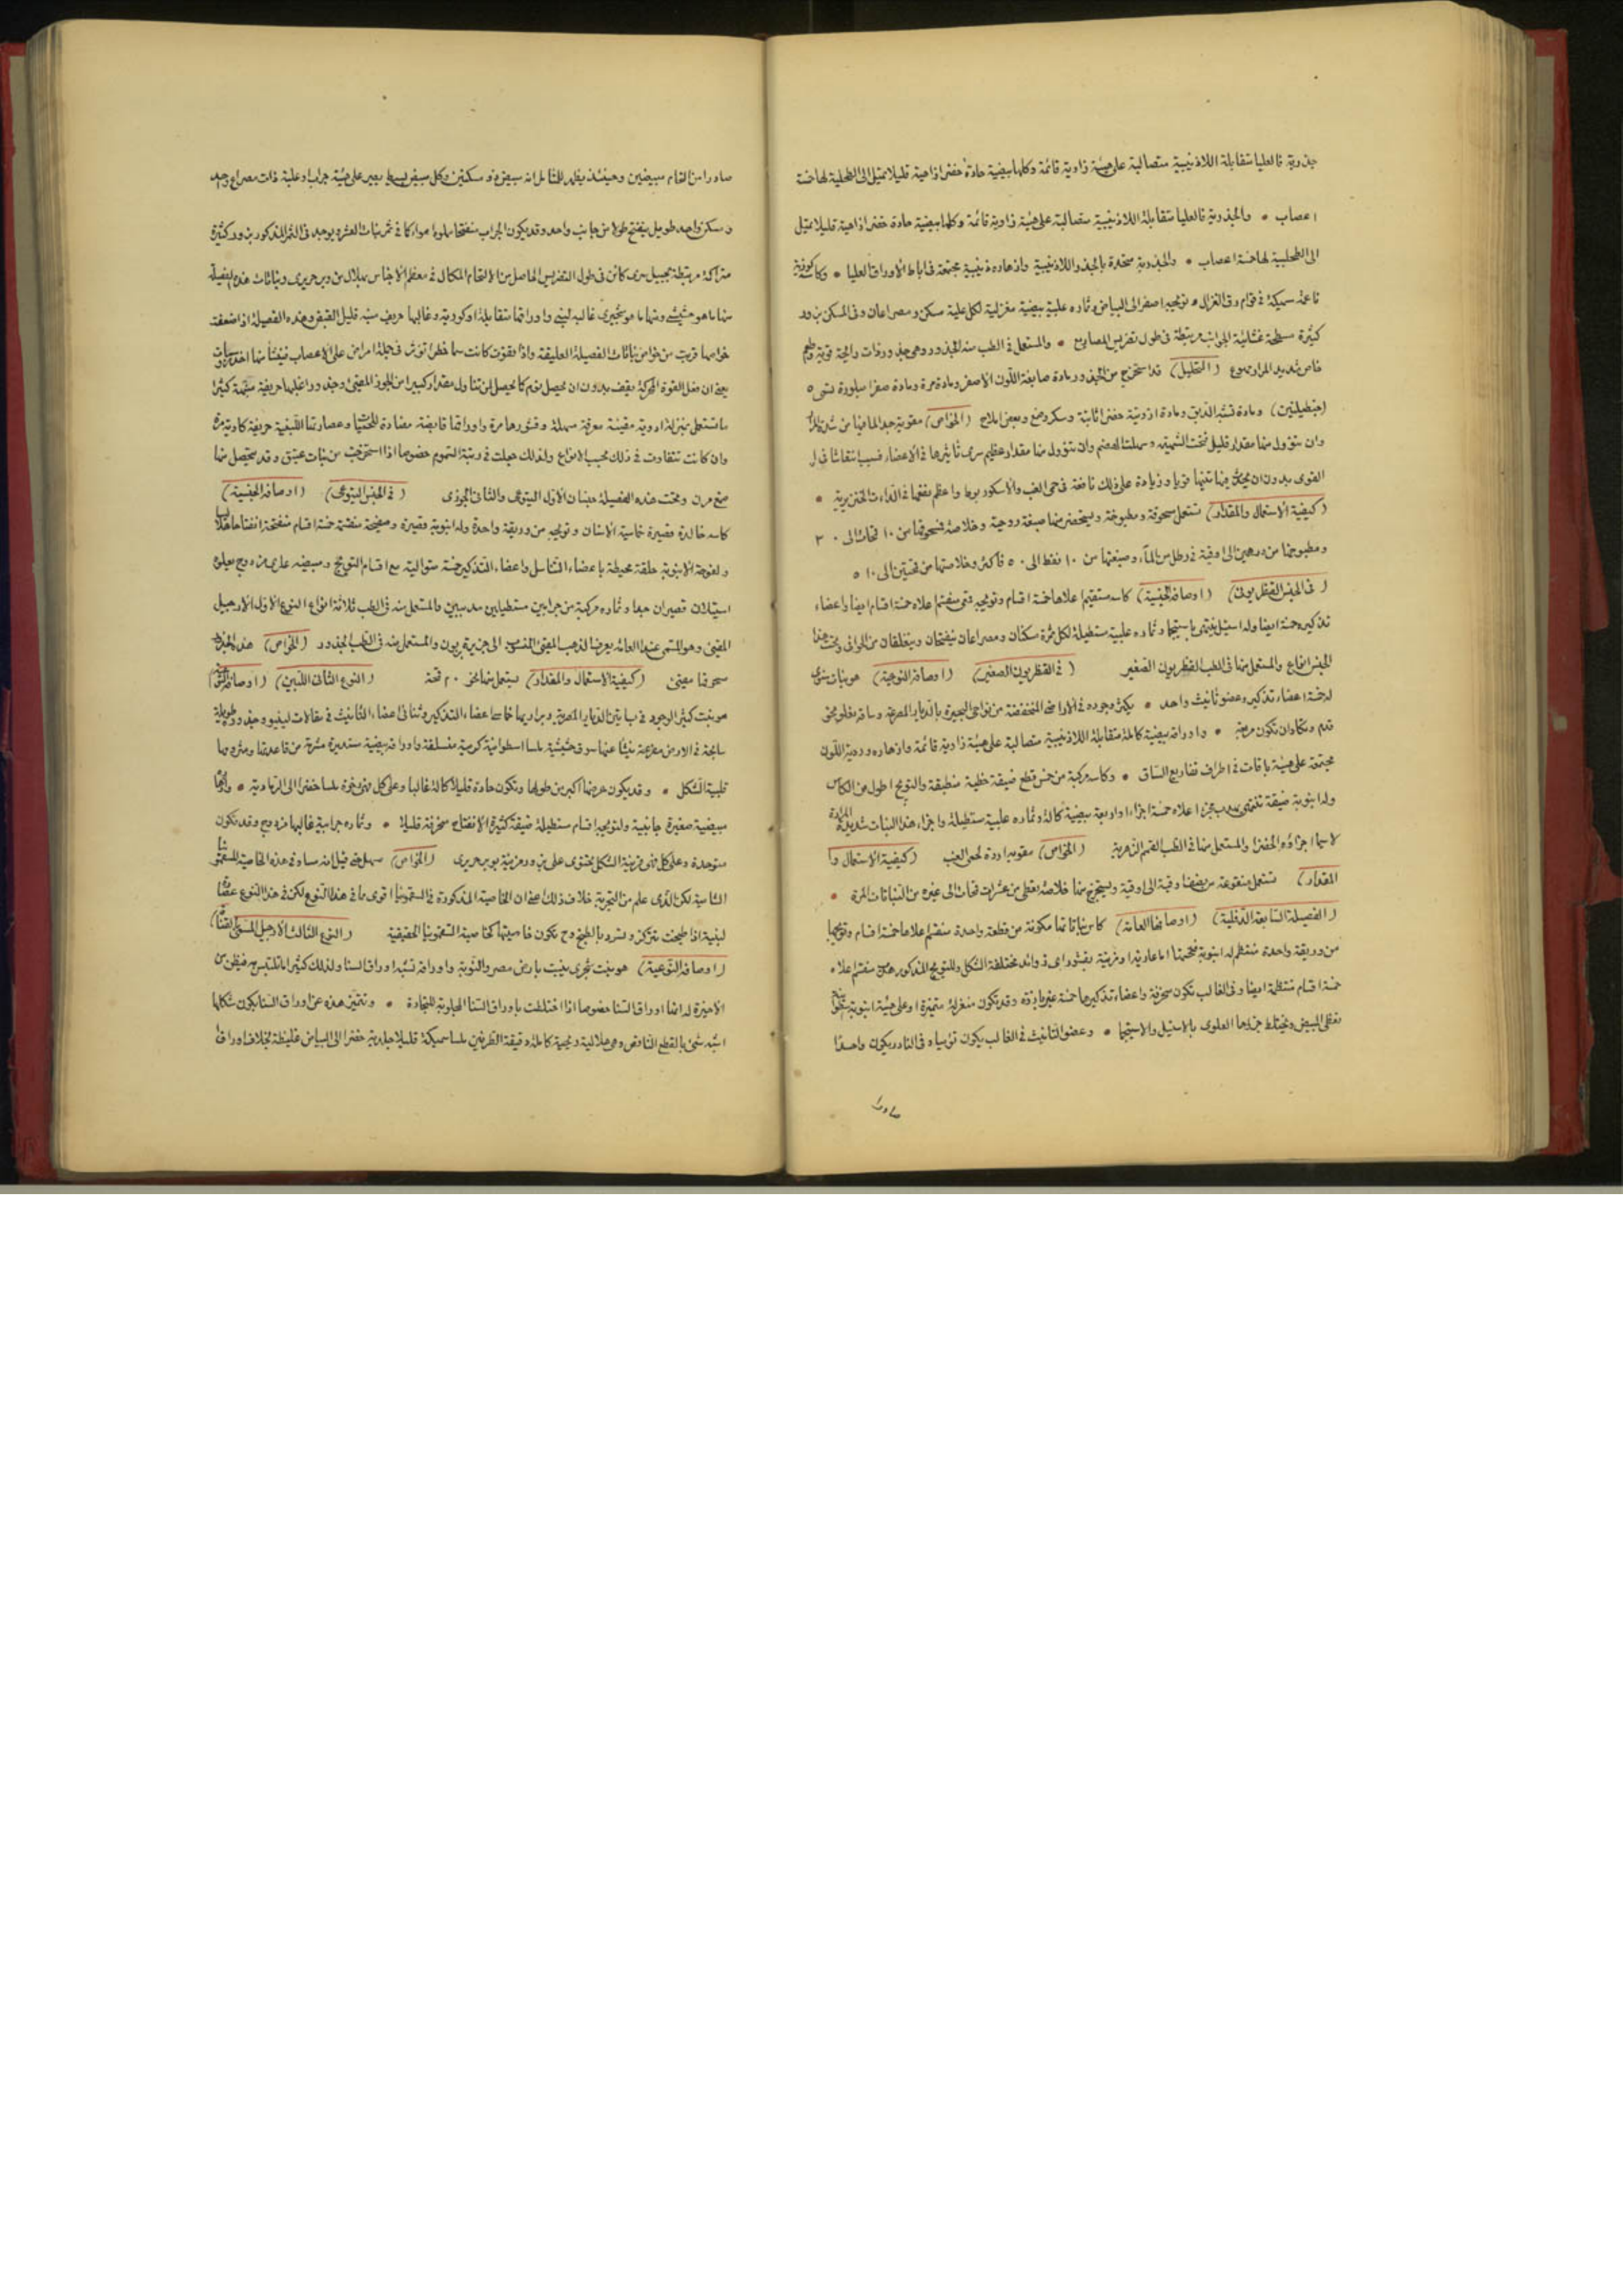 جذرية فالعليا متقابلة اللاذنيبية متصالبة على هيئة زاوية قائمة وكلها بيضية حادة خضرا زاهية قليلا تميل الى الطحلبية لها خمسة
اعصاب • والجذرية فالعليا متقابلة اللاذنيبية متصالبة على هيئة زاوية قائمة وكلها بيضية حادة خضرا زاهية قليلا تميل
الى الطحلبية لها خمسة اعصاب • والجذرية منحدرة بالجذر واللاذنيبية وازهاره ذنيبية مجتمعة فى اباط الاوراق العليا • وكاسه كوفية
ناعمة سميكة فى قوام رق الغزال وتويجه اصفر الى البياض وثماره علبية بيضية مغزلية لكل علبة سكن ومصراعان وفى المسكن بزور
كثيرة مسطحة غشائية الجوانب مرتبطة فى طول تضريس المصاريع • والمستعمل فى الطب منه الجذور وهى جذور ذات رائحة قوية وطعم
خاص شديد المرار (التحليل) قد استخرج من الجذور مادة صابغة اللون الاصفر ومادة مرة ومادة صفرا متبلورة تسمى
(جنطيانين) ومادة تشبه الدبق ومادة ازوتية خضرا ثابتة وسكر وصمغ وبعض املاح (الخواص) مقوية جدا لما فيها من شدة المرار
وان تنوول منها مقدار قليل نبهت الشهية وسهلت الهضم وان تنوول منها مقدار عظيم سرى تأثيرها فى الاعضاء فسبب انتفاشا فى
القوى بدون ان يحدث منها تنبها قويا وزيادة على ذلك نافعة فى حمى الغب والاسكوربوط واعظم نفعها فى الداءات الخنزيرية •
(كيفية الاستعمال والمقدار) تستعمل مسحوقة ومطبوخة ويستحضر منها صبغة روحية وخلاصة فمسحوقها من ١٠ قمحات الى ٣٠
ومطبوخها من درهمين الى اوقية فى رطل من الماء وصبغتها من ١٠ نقط الى ٥٠ فاكثر وخلاصتها من قمحتين الى ١٠
(فى الجنس القنطريونى) (اوصافه الجنسية) كاسه مستقيم اعلاها خمسة اقسام وتويجه قمعى منقسم اعلاه خمسة اقسام ايضا واعضاء
تذكيره خمسة ايضا وله استيل ينتهى باستيجما وثماره علبية مستطيلة لكل ثمرة سكنان ومصراعان ينفتحان وينغلقان من الحوافى وتحت هذا
الجنس انواع والمستعمل منها فى الطب القنطريون الصغير (فى القنطريون الصغير) (اوصافه النوعية) هو نبات سنوى
له خمسة اعضاء تذكير وعضو تأنيث واحد • يكثر وجوده فى الاراضى المنخفضة من نواحى البحيرة بالديار المصرية وساقه يعلو نحو
قدم ويكاد ان تكون مربعة • واوراقه بيضية كاملة متقابلة اللاذنيبية متصالبة على هيئة زاوية قائمة وازهاره وردية اللون
مجتمعة على هيئة باقات فى اطراف تفاريع الساق • وكاسه مركبة من خمس قطع ضيقة خطية منطبقة والتويج اطول من الكاس
وله انبوبة ضيقة تنقسم اعلاه خمسة اجزاء واربعة بيضية كاملة وثماره علبية مستطيلة واجزاء هذا النبات شديدة المرارة
لاسيما اجزاؤه الخضرا والمستعمل منها فى الطب القمم الزهرية (الخواص) مقوية طاردة لحمى الغب (كيفية الاستعمال و
المقدار) تستعمل منقوعة من نصف اوقية الى اوقية ويستخرج منها خلاصة تعطى من عشر قمحات الى غيره من النباتات المرة •
(الفصيلة السابعة الدفلية) (اوصافها العامة) كاس نباتاتها مكونة من قطعة واحدة منقسم اعلاها خمسة اقسام وتويجها
من وريقة واحدة منتظم له انبوبة فتحتها اما عارية او مزينة بقشور اى زوائد مختلفة الشكل والتويج المذكور منقسم اعلاه
خمسة اقسام منتظمة ايضا وفى الغالب تكون منحرفة واعضاء تذكيرها خمسة غير بارزة وقد تكون منعزلة متميزة او على هيئة انبوبة
تغطى المبيض ويختلط جزءها العلوى بالاستيل والاستيجما • وعضو التأنيث فى الغالب يكون توميا وفى النادر يكون واحدا
صادرا
صادرا من التحام مبيضين وحينئذ يظهر للمتأمل انه مبيض ذو سكنين وكل مبيض بسيط يصير على هيئة جراب او علبة ذات مصراع واحد
وسكن واحد طويل ينفتح طولا من جانب واحد وقد يكون الجراب منتفخا مملوءا هواء كما فى ثمر نبات العشر ويوجد فى الثمر المذكور بزور كثيرة
متراكمة مرتبطة بحبيل سرى كائن فى طول التضريس الحاصل من الالتحام المكمل فى معظم الاجناس بهلال من وبر حريرى ونباتات هذه الفصيلة
منها ما هو حشيشى ومنها ما هو شجيرى غالبه لبنى واوراقها متقابلة او كوردية وغالبها حريف منبه قليل القبض وهذه الفصيلة اذا ضعفت
خواصها قربت من خواص نباتات الفصيلة العليقية واذا قويت كانت سما خطرا تؤثر فى جملة امراض على الاعصاب
يعنى ان فعل القوة المحركة يقف بدون ان يحصل نوم كما يحصل لمن تناول مقدارا كبيرا من الجوز المقيئ وجذور اغلبها حريفة مقيئة كثيرا
ما تستعمل بمنزلة ادوية مقيئة معرقة مسهلة وقشورها مرة واوراقها قابضة مضادة للحمى وعصارتها اللبنية حريفة كاوية مرة
وان كانت تتفاوت فى ذلك بحسب الانواع ولذلك جعلت فى رتبة السموم خصوصا اذا استخرجت من نبات عتيق وقد يتحصل منها
صمغ مرن وتحت هذه الفصيلة جنسان الاول اليتوعى والثانى الجوزى (فى الجنس اليتوعى) (اوصافه الجنسية)
كاسه خالدة قصيرة خماسية الاسنان وتويجه من وريقة واحدة وله انبوبة قصيرة وصفيحة منقسمة خمسة اقسام منفتحة انفتاحا
ولفوهة الانبوبة حلقة محيطة باعضاء التناسل واعضاء التذكير خمسة متوالية مع اقسام التويج ومبيضه عار مزدوج يعلوه
استيلان قصيران جدا وثماره مركبة من جرابين مستطيلين مدببين والمستعمل منه فى الطب ثلاثة انواع النوع الاول الارجيل
المقيئ وهو المسمى عند العامة بعرق الذهب المقيئ المنسوب الى جزيرة بربون والمستعمل منه فى الطب الجذور (الخواص) هذه الجذور
مسحوقها مقيئ (كيفية الاستعمال والمقدار) يستعمل منها نحو ٢٠ قمحة (النوع الثانى اللبين) (اوصافه النوعية)
هو نبت كثير الوجود فى بساتين الديار المصرية وبراريها خماسى اعضاء التذكير وثنائى اعضاء التأنيث فى مقالات لينيو وجذوره طويلة
سابحة فى الارض متفرعة ينشأ عنها سوق خشبية ملسا اسطوانية كرمية متسلقة واوراقه بيضية مستديرة مشرمة من قاعدتها وشرومها
قلبية الشكل • وقد يكون عرضها اكبر من طولها وتكون حادة قليلا كاملة غالبا وعلى كل فهى رخوة ملسا خضرا الى الرمادية • وازهاره
مبيضية صغيرة جانبية ولتويجه اقسام مستطيلة ضيقة كثيرة الانفتاح منحرفة قليلا • وثماره جرابية غالبها مزدوج وقد تكون
متوحدة وعلى كل فهى مزينة الشكل تحتوى على بزور مزينة بوبر حريرى (الخواص) مسهل حتى قيل انه مساو فى هذه الخاصية للسقمونيا
الشامية لكن الذى علم من التجربة خلاف ذلك اذ ان الخاصية المذكورة فى السقمونيا اقوى مما فى هذا النوع لكن فى هذا النوع عصارة
لبنية اذا طبخت تتركز وتسود بالطبخ وح تكون خاصيتها كخاصية السقمونيا الحقيقية (النوع الثالث الارجيل المسمى
(اوصافه النوعية) هو نبت شجرى ينبت بارض مصر والنوبة واوراقه تشبه اوراق السنا ولذلك كثيرا ما تلتبس به فيظن من
الاخيرة انها اوراق السنا خصوصا اذا اختلطت باوراق السنا المجلوبة للتجارة • وتتميز هذه عن اوراق السنا بكون شكلها
اشبه شئ بالقطع الناقص وهى هلالية وبحبية كاملة دقيقة الطرفين ملسا سميكة قليلا جلدية خضرا الى البياض غليظة بخلاف اوراق